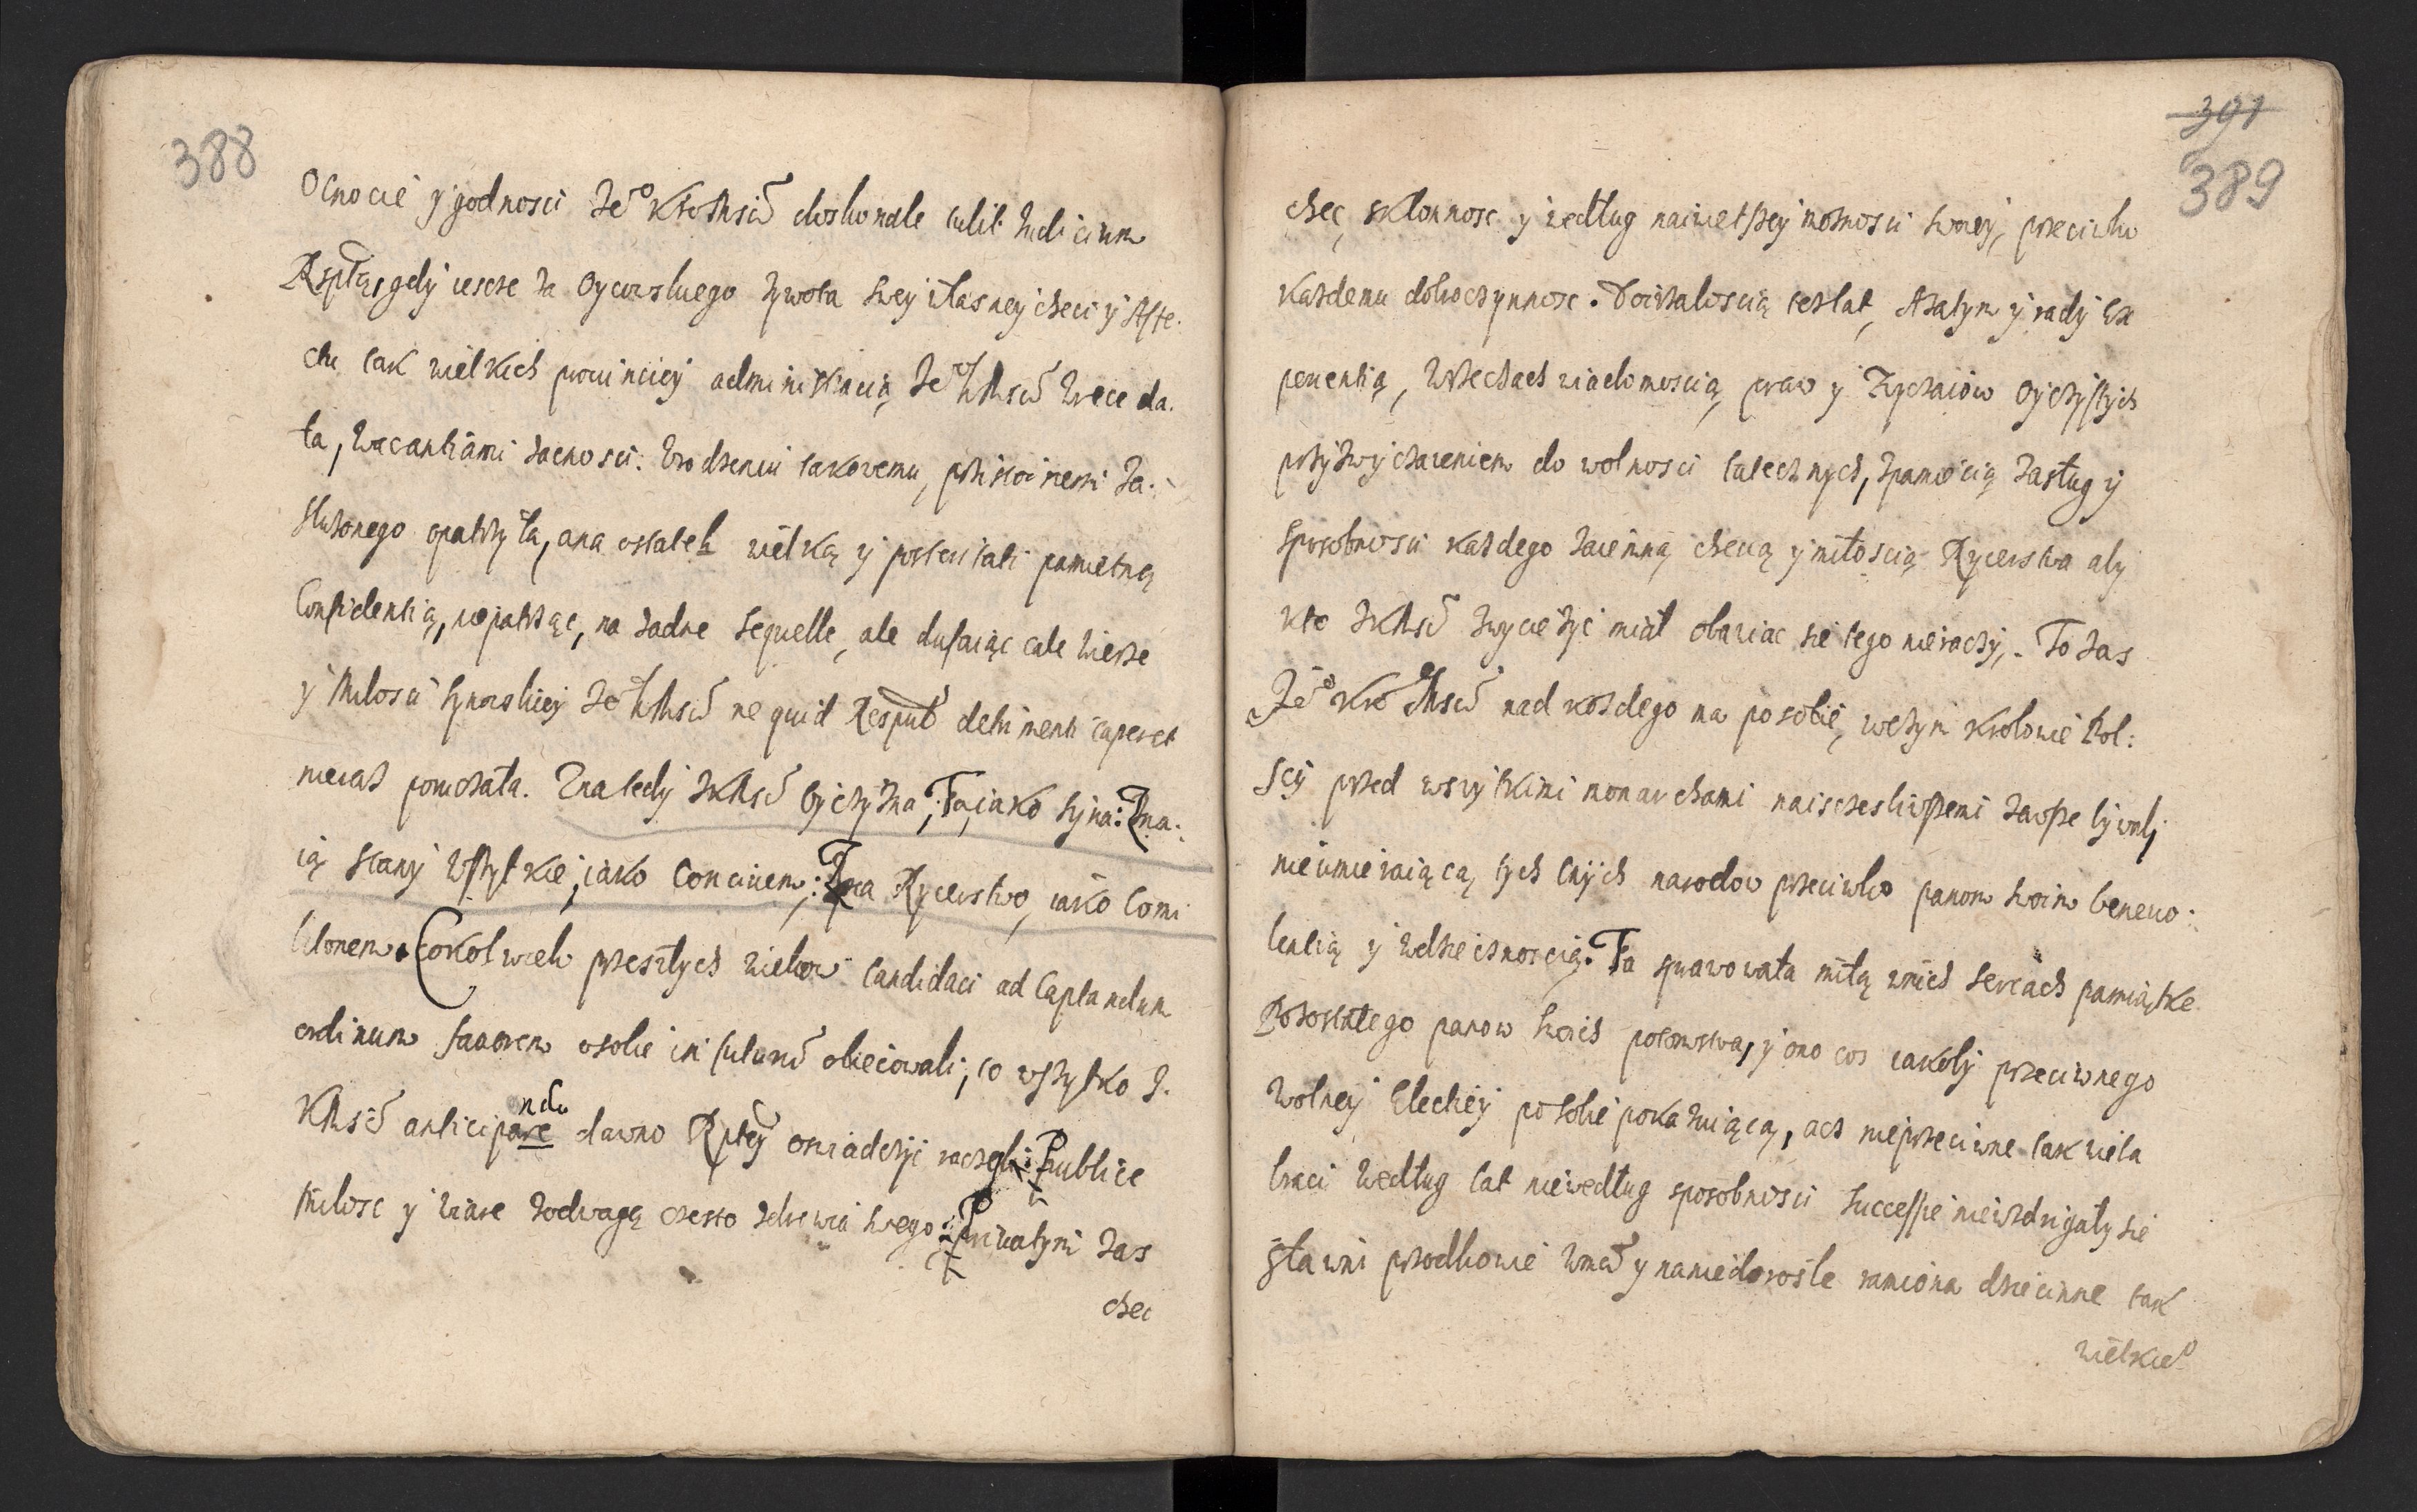 388
O Cnocie y godnosci Jeo KroMsci doskonale tulit Judicium
Rsptą, gdy iescze za Oycowskiego zywota swey własney checi y Affe.
ctu tak wielkich prouinciey administracią Je KMsci w rece da.
ła, wacantiami zacnosci. Vrodzeniu takovemu, pristoinemi Za.
sluzonego opatrzyła, a na ostatek wielką y posteritati pamietną
Confidentią, niepatrząc, na zadne sequelle, ale dufaiąc cale wierze
y Milosci Synowskiey Je KMsci ne quid Respub detrimenti caperet
nieraz poruczała. Zna tedy JKMsc Oyczyzna, Ta, iako syna: Zna.
ią stany wszytkie, iako Conciuem: Zna Rycerstwo, iako Comi
litonem. Cokolwiek przeszłych wiekow Candidaci ad Captandum
ordinum fauorem o sobie in futurum obiecowali, co wszytko J.
KMsc anticipare ndo dawno Rptey oswiadczyc raczeli: Publice
Milosc y wiare z odwagą czesto zdrowia swego: Priuatym zas
chec
391
389
chęc, sklonnosc y według naiwietszey moznosci swoiey, przeciwko
kazdemu dobroczynnosc. Doirzaloscią tesz lat, A zatym y rady Ex
perientią, w rzeczach wiadomoscią praw y Zyczaiow Oyczystych
przyzwyczaieniem do wolnosci tutecznych, z pamiecią zasług y
sposobnosci kazdego zaiemną checią y miłoscią Rycerstwa aby
kto JKMsc zwyciezyc miał obawiac sie tego nieraczy. To zas
Jeo Kro Msci nad kozdego na posobie, w czym Krolowie Pol:
scy przed wszytkimi monarchami naisczesliwszemi zawsze bywaly
nieumieraiącą tych tuych narodow przeciwko panom swoim beneuo:
lentią y wdziecznoscią. Ta sprawowała miłą w nich sercach pamiątke
Pozostałego panow swoich potomstwa, y ono cos iakoby przeciwnego
Wolney Electiey po sobie pokazuiącą, acz nieprzeciwne tak wiela
braci według lat nie według sposobnosci Successie nie wzdrigaly sie
sławni przodkowie y na niedorosłe ramiona dziecinne tak
wielkieo